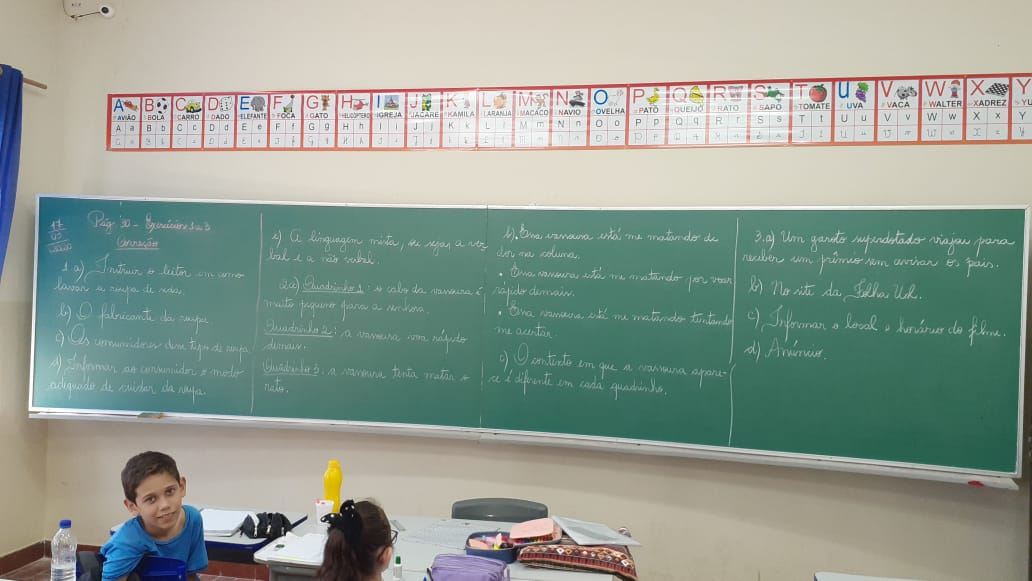 A B C D E F G H I J K L M N O P Q R S T U V W X Y
AVIÃO BOLA CARRO DADO ELEFANTE FOCA GATO HELICÓPTERO IGREJA JACARÉ KAMILA LARANJA MACACO NAVIO OVELHA PATO QUEIJO RATO SAPO TOMATE UVA VACA WALTER XADREZ
A a B b C c D d E e F f G g H h I i J j K k L l M m N n O o P p Q q R r S s T t U u V v W w X x Y
17
Pág 30 - Exercícios 1 a 3
Correção
1 a) Instruir o leitor em como
lavar a roupa de seda.
b) O fabricante da roupa.
c) Os consumidores desse tipo de roupa
d) Informar ao consumidor o modo
adequado de cuidar da roupa.
e) A linguagem mista, ou seja, a ver
bal e a não verbal.
2a) Quadrinho 1: o cabo da vassoura é
muito pequeno para a senhora.
Quadrinho 2: a vassoura voa rápido
demais.
Quadrinho 3: a vassoura tenta matar o
rato.
b). Essa vassoura está me matando de
dor na coluna.
• Essa vassoura está me matando por voar
rápido demais.
• Essa vassoura está me matando tentando
me acertar.
c) O contexto em que a vassoura apare-
ce é diferente em cada quadrinho.
3.a) Um garoto superdotado viajou para
receber um prêmio sem avisar os pais.
b) No site da Folha Uol.
c) Informar o local e horário do filme.
d) Anúncio.